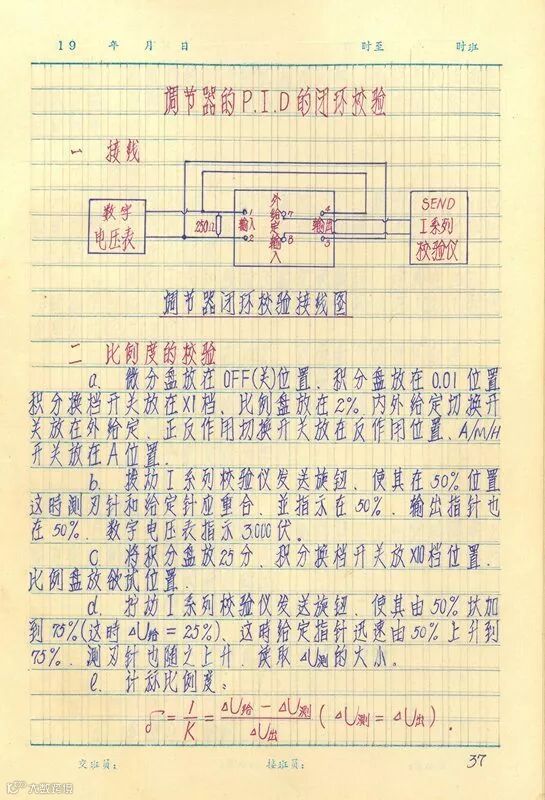 19 年 月 日 时至 时班
调节器的P.I.D的闭环校验
一 接线
数字
电压表
250Ω
1
输入
2
外给定输入
7
8
4
输出
3
SEND
I系列
校验仪
调节器闭环校验接线图
二 比例度的校验
a. 微分盘放在OFF(关)位置、积分盘放在0.01位置
积分换档开关放在X1档、比例盘放在2%.内外给定切换开
关放在外给定、正反作用切换开关放在反作用位置、A/M/H
开关放在A位置.
b. 拨动I系列校验仪发送旋钮、使其在50%位置
这时测刃针和给定针应重合、並指示在50%、输出指针也
在50%、数字电压表指示3.000伏。
C、将积分盘放25分、积分换档开关放X10档位置、
比例盘放欲试位置.
d、拧动I系列校验仪发送旋钮、使其由50%状加
到75%(这时△U给=25%)、这时给定指针迅速由50%上升到
75%、测刃针也随之上升、读取△U测的大小。
e. 计称比例度:
δ = 1/K = △U给 - △U测 / △U出 (△U测 = △U出).
交班员: 接班员:
37
大数跨境